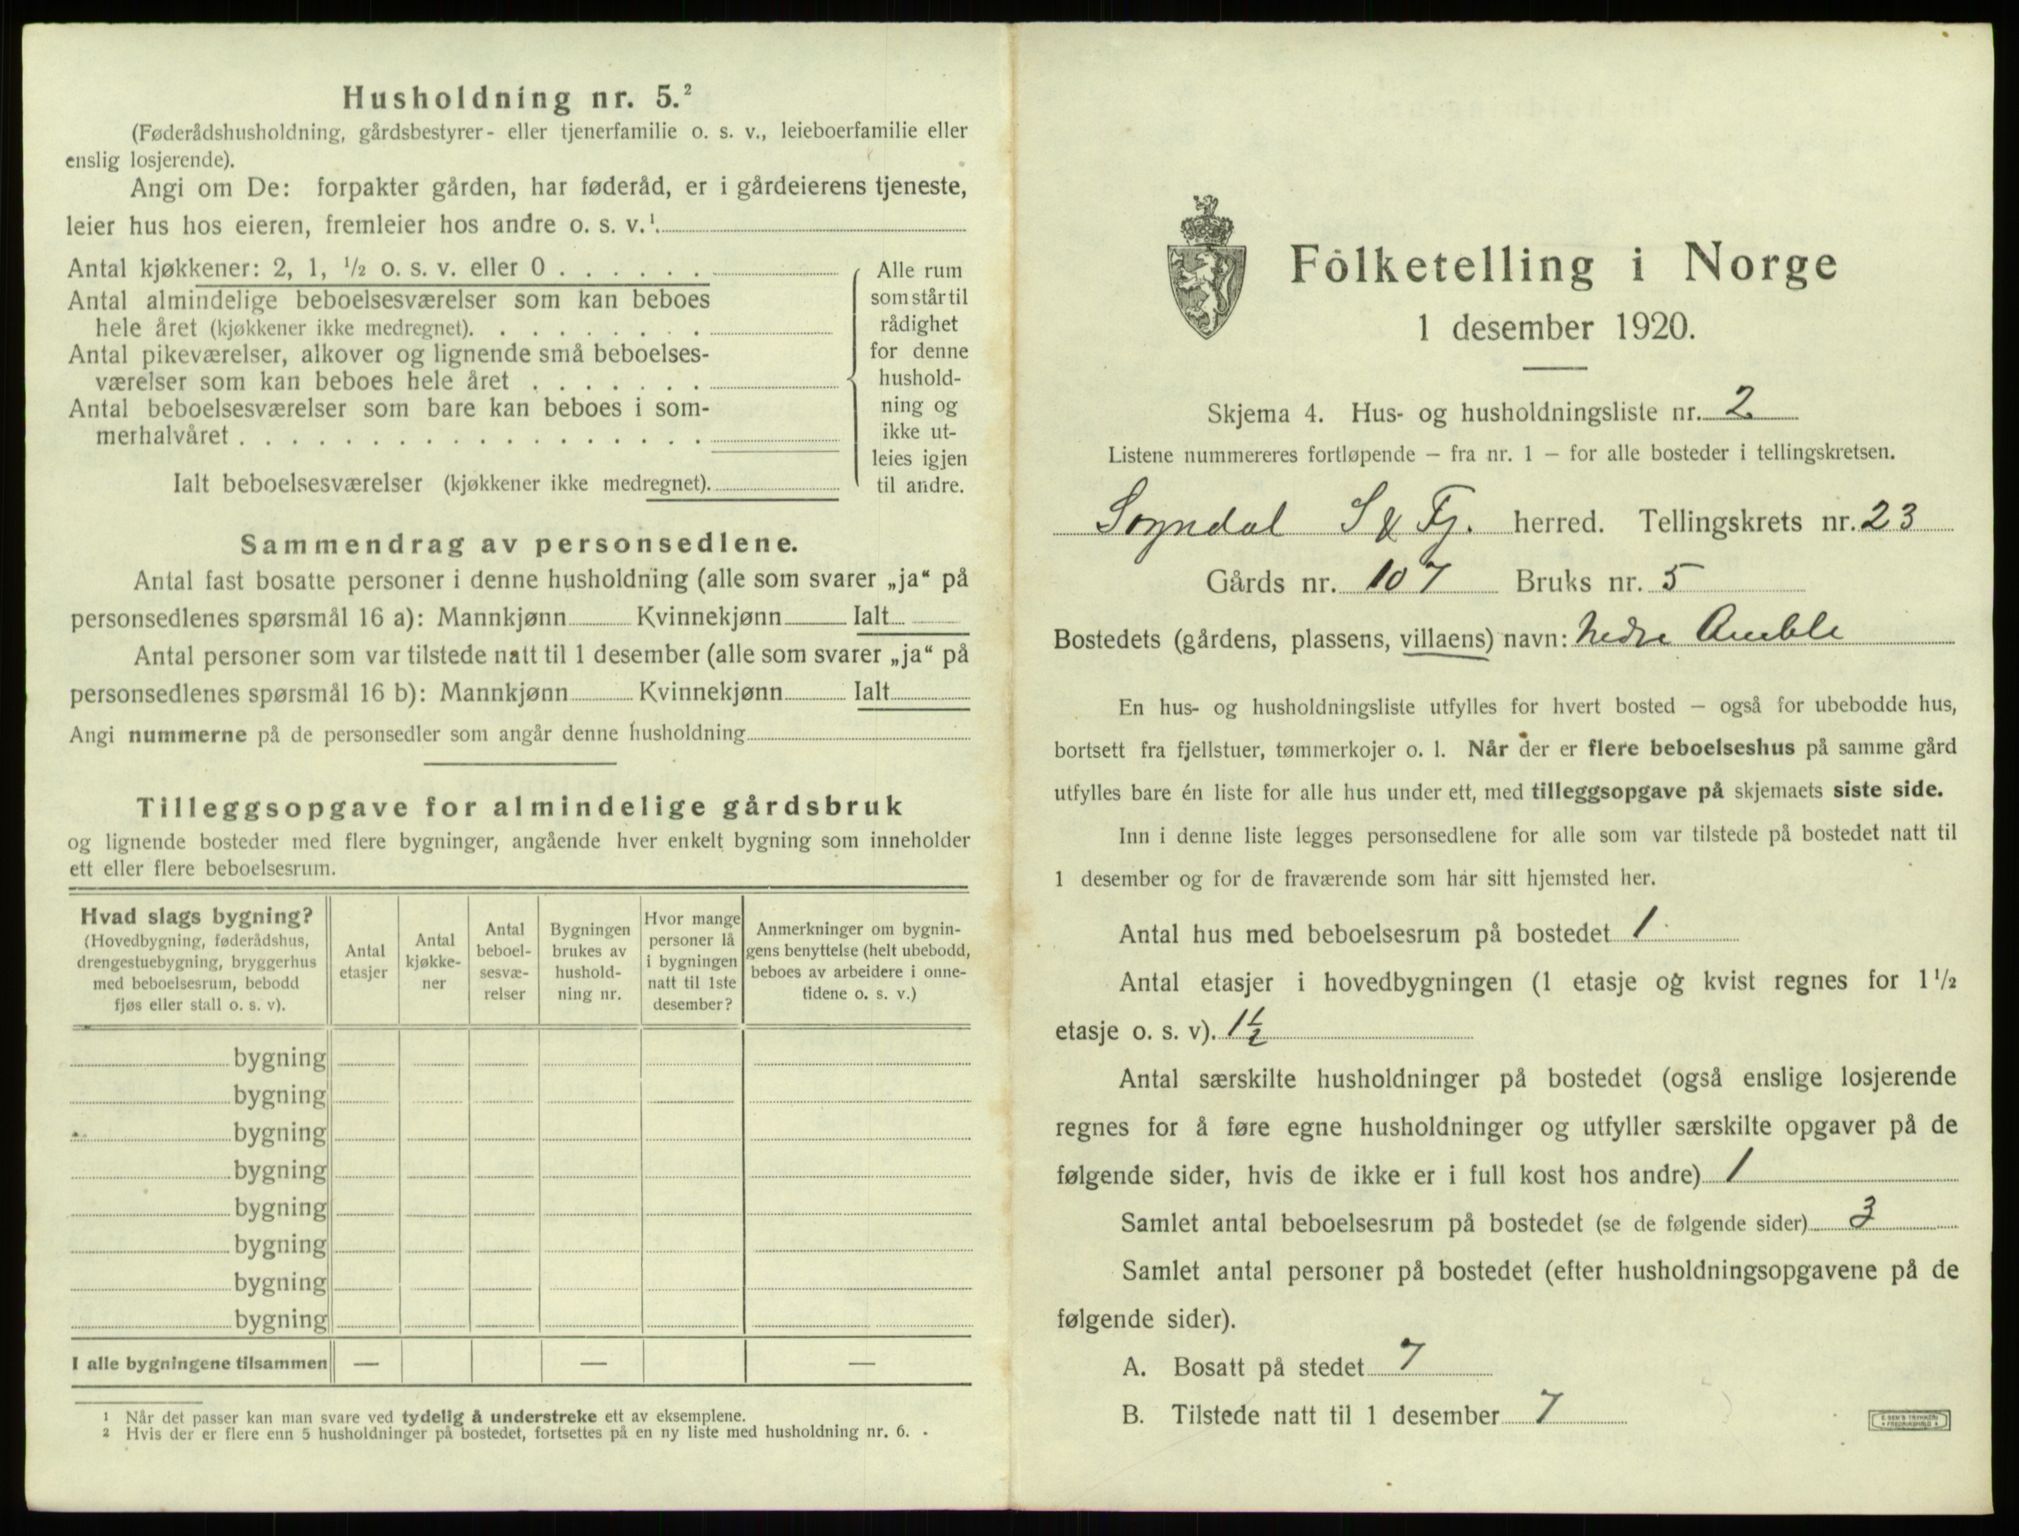 Husholdning nr. 5.²
(Føderådshusholdning, gårdsbestyrer- eller tjenerfamilie o. s. v., leieboerfamilie eller
enslig losjerende).
Angi om De: forpakter gården, har føderåd, er i gårdeierens tjeneste,
leier hus hos eieren, fremleier hos andre o. s. v.¹
Antal kjøkkener: 2, 1, ½ o. s. v. eller 0 . . . . . .
Antal almindelige beboelsesværelser som kan beboes
hele året (kjøkkener ikke medregnet). . . . . . . . .
Antal pikeværelser, alkover og lignende små beboelses-
værelser som kan beboes hele året . . . . . . .
Antal beboelsesværelser som bare kan beboes i som-
merhalvåret . . . . . . . . . . . . . . . . . .
Ialt beboelsesværelser (kjøkkener ikke medregnet).
Alle rum
som står til
rådighet
for denne
hushold-
ning og
ikke ut-
leies igjen
til andre.
Sammendrag av personsedlene.
Antal fast bosatte personer i denne husholdning (alle som svarer „ja“ på
personsedlenes spørsmål 16 a): Mannkjønn Kvinnekjønn Ialt
Antal personer som var tilstede natt til 1 desember (alle som svarer „ja“ på
personsedlenes spørsmål 16 b): Mannkjønn Kvinnekjønn Ialt
Angi nummerne på de personsedler som angår denne husholdning
Tilleggsopgave for almindelige gårdsbruk
og lignende bosteder med flere bygninger, angående hver enkelt bygning som inneholder
ett eller flere beboelsesrum.
Hvad slags bygning?
(Hovedbygning, føderådshus,
drengestuebygning, bryggerhus
med beboelsesrum, bebodd
fjøs eller stall o. s. v).
Antal
etasjer
Antal
kjøkke-
ner
Antal
beboel-
sesvæ-
relser
Bygningen
brukes av
hushold-
ning nr.
Hvor mange
personer lå
i bygningen
natt til 1ste
desember?
Anmerkninger om bygnin-
gens benyttelse (helt ubebodd,
beboes av arbeidere i onne-
tidene o. s. v.)
bygning
bygning
bygning
bygning
bygning
bygning
bygning
bygning
I alle bygningene tilsammen — — —
¹ Når det passer kan man svare ved tydelig å understreke ett av eksemplene.
² Hvis der er flere enn 5 husholdninger på bostedet, fortsettes på en ny liste med husholdning nr. 6.
Folketelling i Norge
1 desember 1920.
Skjema 4. Hus- og husholdningsliste nr. 2
Listene nummereres fortløpende – fra nr. 1 – for alle bosteder i tellingskretsen.
Sogndal S & Fj. herred. Tellingskrets nr. 23
Gårds nr. 107 Bruks nr. 5
Bostedets (gårdens, plassens, villaens) navn: Nedre Amble
En hus- og husholdningsliste utfylles for hvert bosted – også for ubebodde hus,
bortsett fra fjellstuer, tømmerkojer o. l. Når der er flere beboelseshus på samme gård
utfylles bare én liste for alle hus under ett, med tilleggsopgave på skjemaets siste side.
Inn i denne liste legges personsedlene for alle som var tilstede på bostedet natt til
1 desember og for de fraværende som har sitt hjemsted her.
Antal hus med beboelsesrum på bostedet 1
Antal etasjer i hovedbygningen (1 etasje og kvist regnes for 1½
etasje o. s. v). 1½
Antal særskilte husholdninger på bostedet (også enslige losjerende
regnes for å føre egne husholdninger og utfyller særskilte opgaver på de
følgende sider, hvis de ikke er i full kost hos andre) 1
Samlet antal beboelsesrum på bostedet (se de følgende sider) 3
Samlet antal personer på bostedet (efter husholdningsopgavene på de
følgende sider).
A. Bosatt på stedet 7
B. Tilstede natt til 1 desember 7